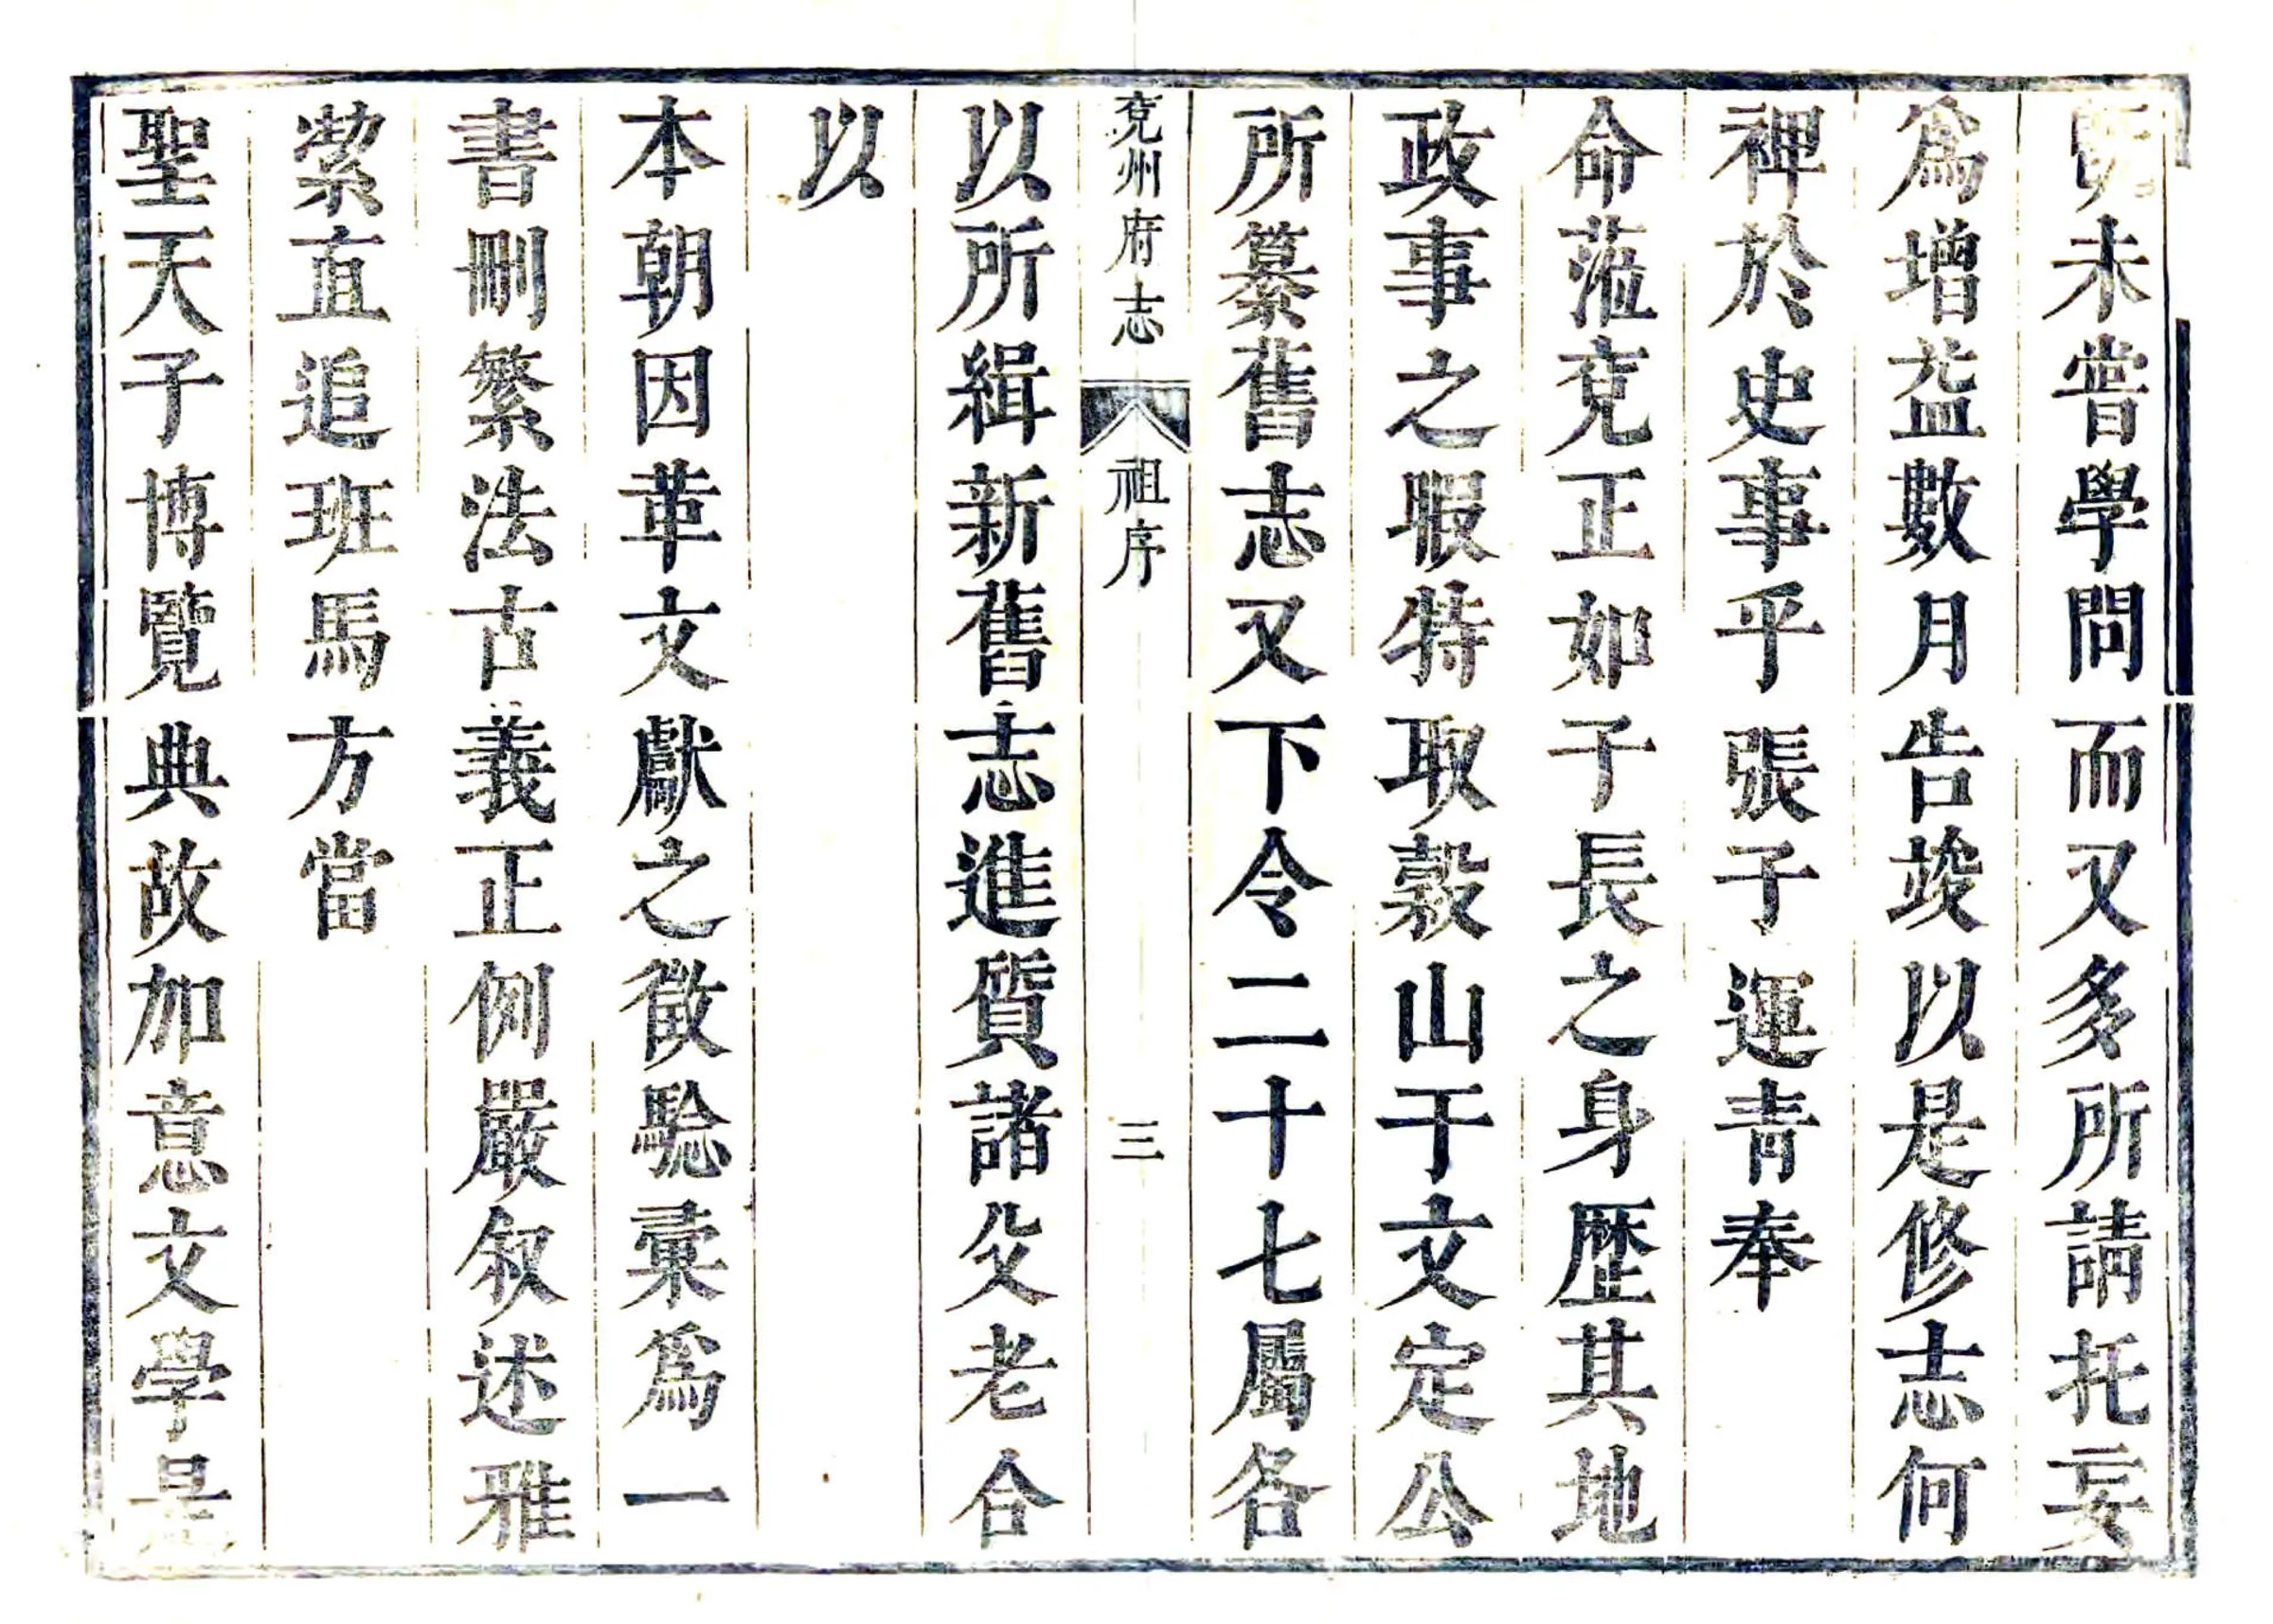 既未嘗學問而又多所請托妄
爲增益數月告竣以是修志何
裨於史事乎張子運青奉
命蒞兗正如子長之身歷其地
政事之暇特取穀山于文定公
所纂舊志又下令二十七屬各
兗州府志 祖序 三
以所緝新舊志進質諸父老合
以
本朝因革文獻之徵驗彙爲一
書刪繁法古義正例嚴叙述雅
潔直追班馬方當
聖天子博覽典故加意文學是